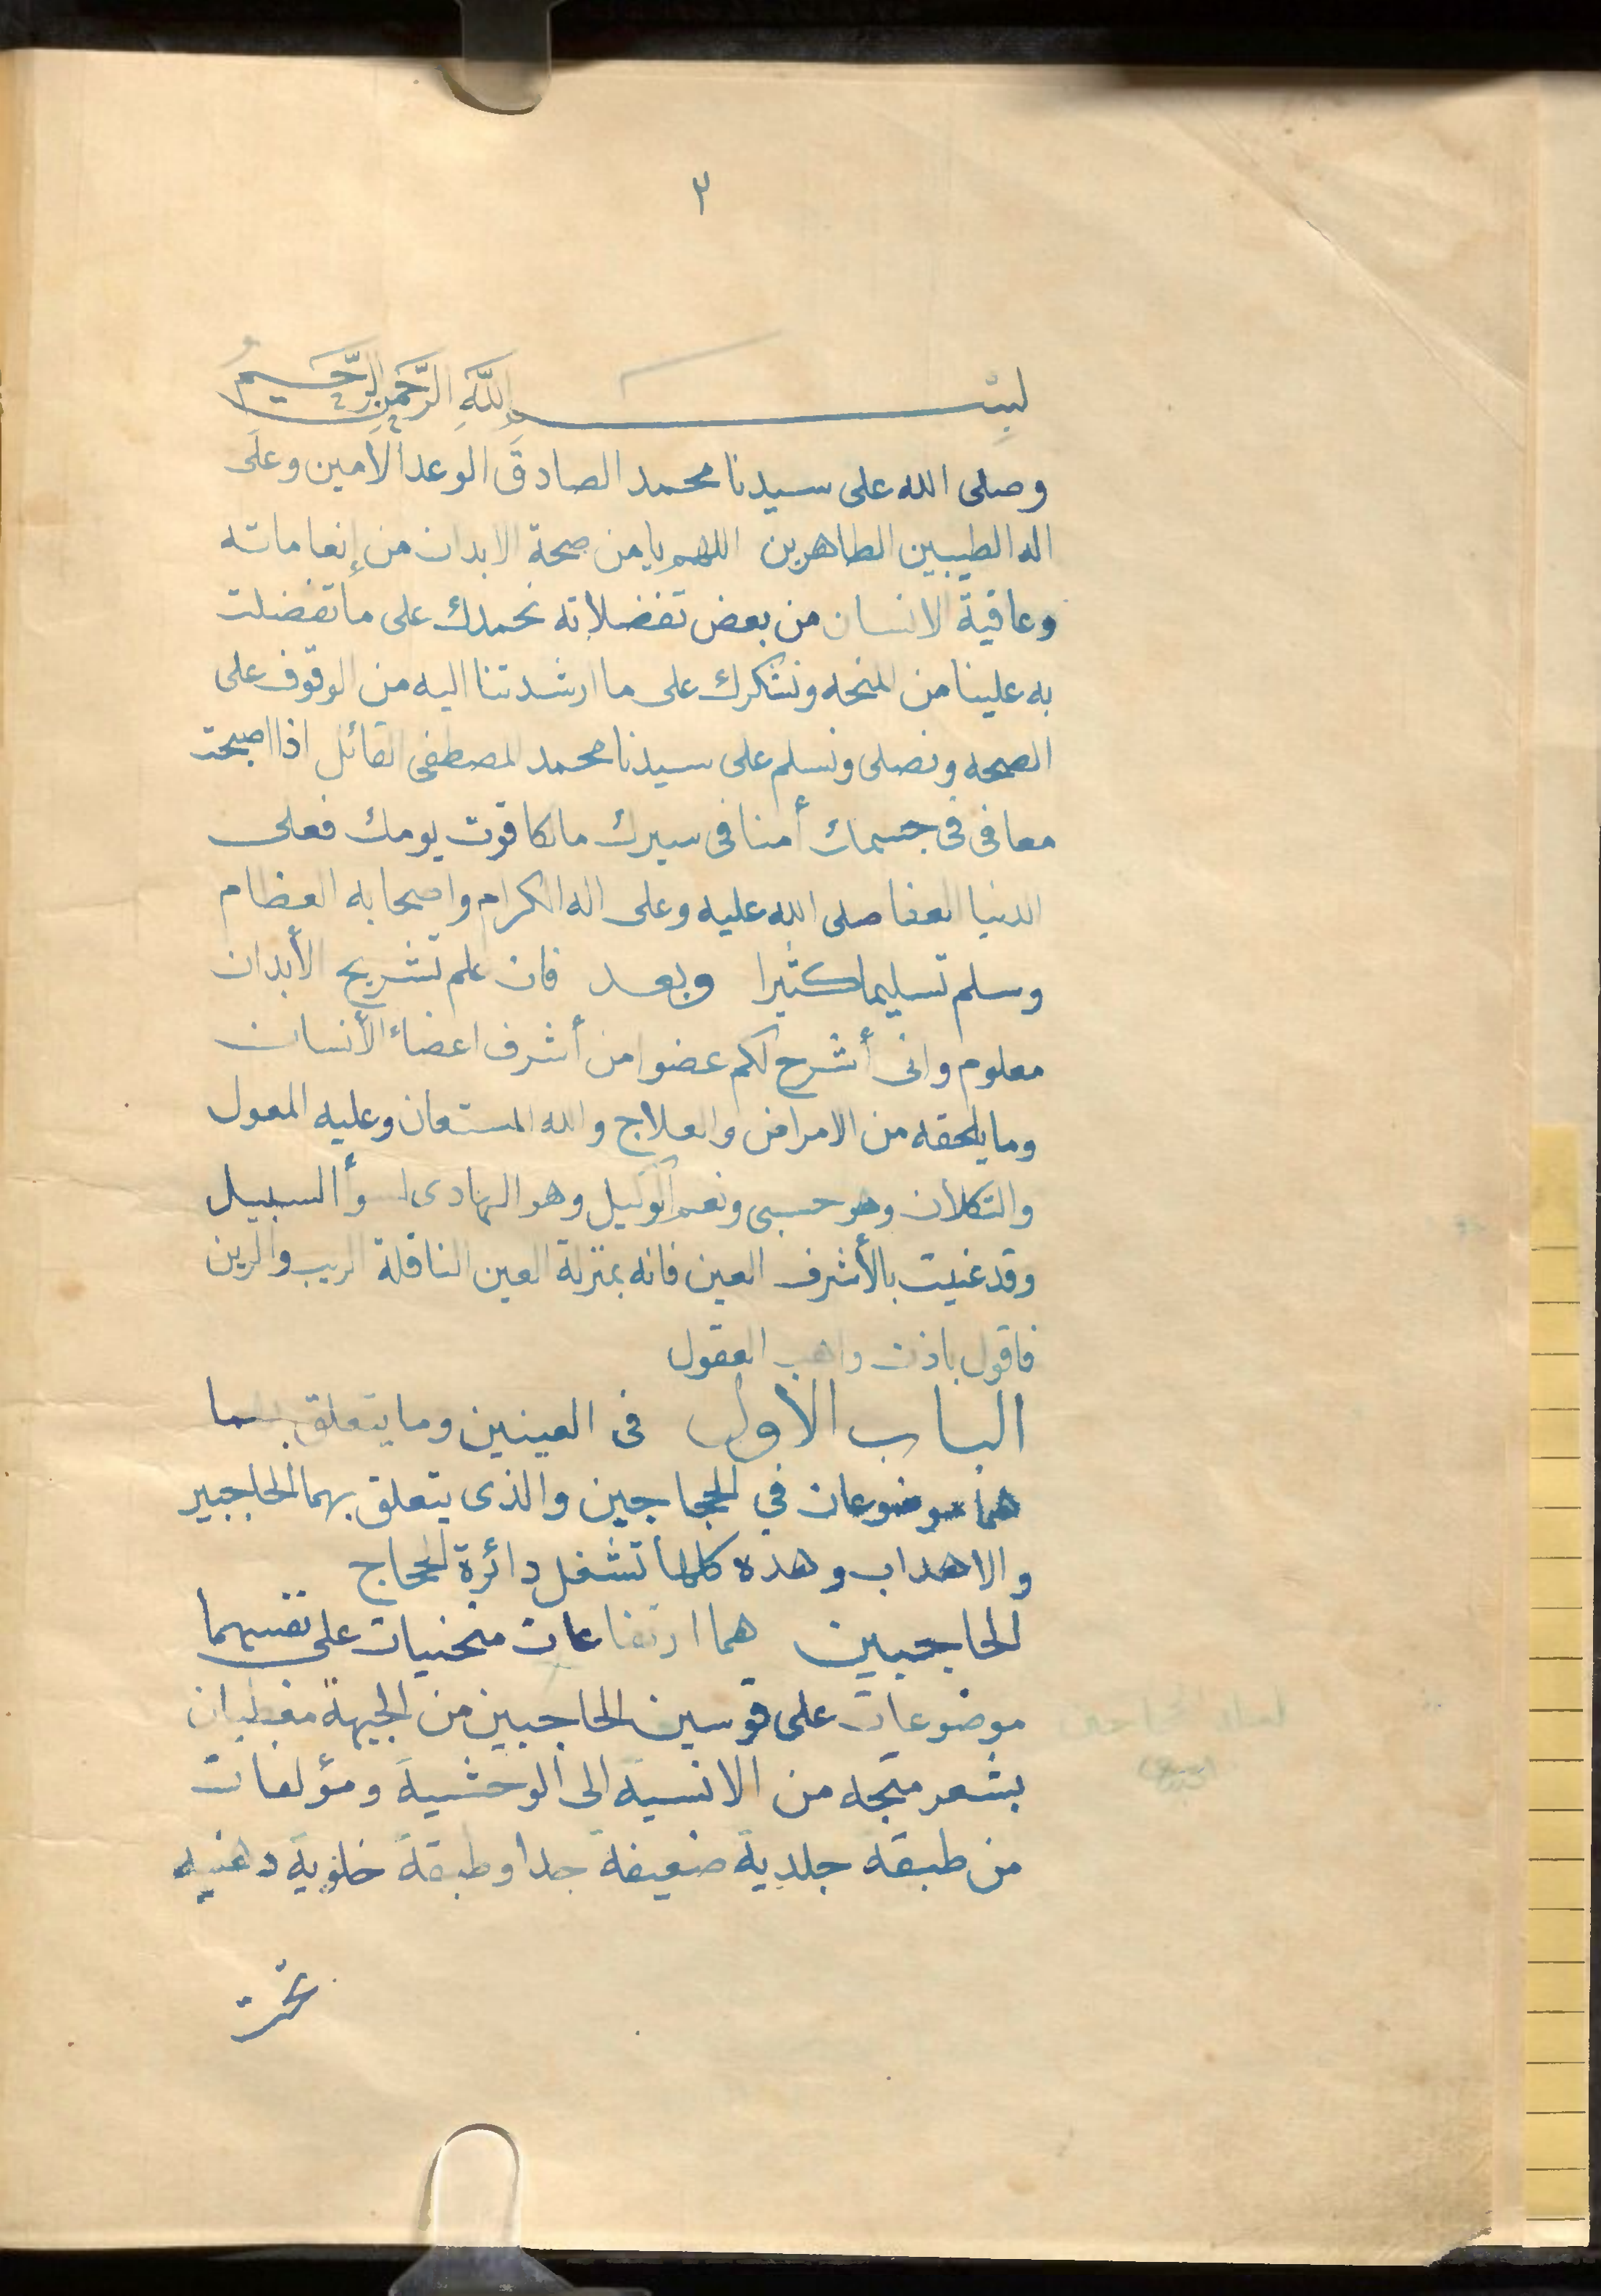 ٢
بسم الله الرحمن الرحيم
وصلى الله على سيدنا محمد الصادق الوعد الأمين وعلى
اله الطيبين الطاهرين اللهم يا من صحة الابدان من إنعاماته
وعافية الانسان من بعض تفضلاته نحمدك على ما تفضلت
به علينا من المنحه ونشكرك على ما ارشدتنا اليه من الوقوف على
الصحه ونصلى ونسلم على سيدنا محمد المصطفى القائل اذا اصبحت
معافى فى جسمك أمنا فى سيرك مالكا قوت يومك فعلى
الدنيا العفا صلى الله عليه وعلى اله الكرام واصحابه العظام
وسلم تسليما كثيرا وبعد فان علم تشريح الأبدان
معلوم وانى أشرح لكم عضوا من أشرف اعضاء الأنسان
وما يلحقه من الامراض والعلاج والله المستعان وعليه المعول
والتكلان وهو حسبى ونعم الوكيل وهو الهادى لسوأ السبيل
وقد عنيت بالأشرف العين فانه بمنزلة العين الناقلة الريب والرين
فاقول باذن واهب العقول
الباب الأول فى العينين وما يتعلق بهما
هما موضوعان في الحجاجين والذى يتعلق بهما الحاجبين
والاهداب وهذه كلها تشغل دائرة الحجاج
الحاجبين هما ارتفاعان منحنيان على نفسهما
موضوعان على قوسين الحاجبين من الجبهة مغطيان
بشعر متجه من الانسية الى الوحشية ومؤلفان
من طبقة جلدية ضعيفة جدا وطبقة خلوية دهنيه